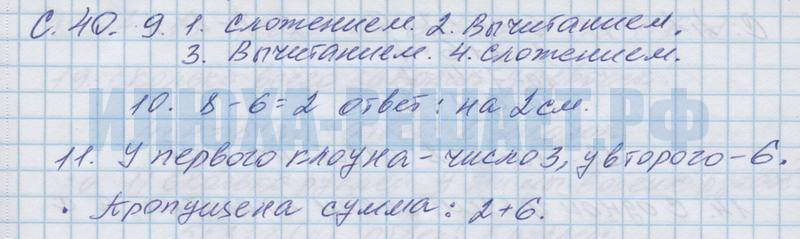 С. 40. 9. 1. Сложением. 2. Вычитанием.
3. Вычитанием. 4. Сложением.
10. 8-6=2 ответ: на 2 см.
ИННОХА-РЕШАЕТ.РФ
11. У первого клоуна - число 3, у второго - 6.
. Пропущена сумма: 2+6.